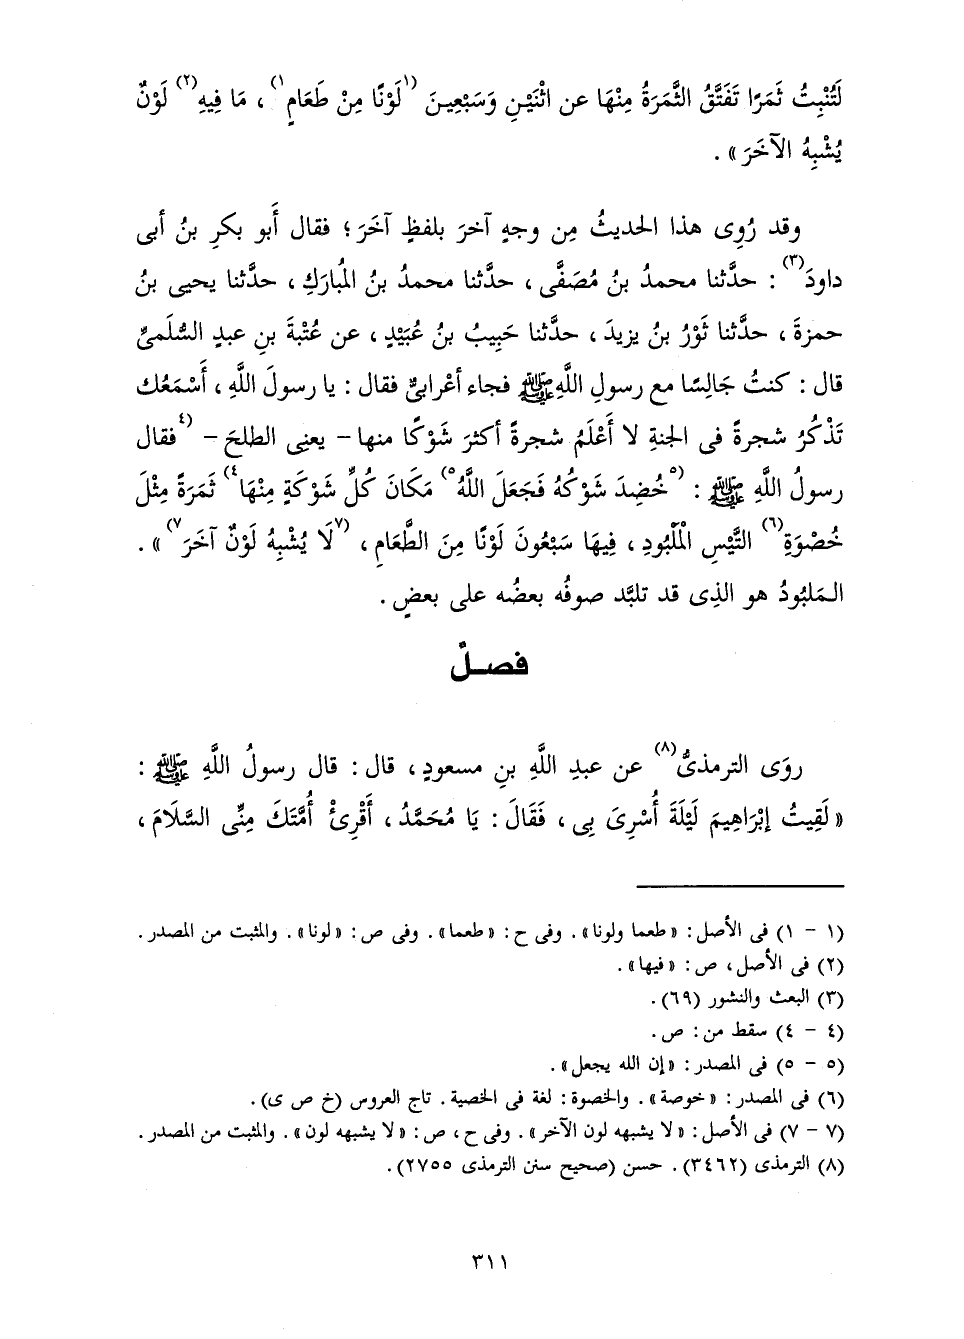 لَتُنْبِتُ ثَمَرًا تَفَتَّقُ الثَّمَرَةُ مِنْهَا عن اثْنَيْنِ وَسَبْعِينَ (١لَوْنًا مِنْ طَعَامٍ١)، مَا فِيهِ(٢) لَوْنٌ
يُشْبِهُ الآخَرَ».
وقد رُوِى هذا الحديثُ مِن وجهٍ آخرَ بلفظٍ آخَرَ؛ فقال أَبو بكرِ بنُ أبى
داودَ(٣): حدَّثنا محمدُ بنُ مُصَفَّى، حدَّثنا محمدُ بنُ المُبارَكِ، حدَّثنا يحيى بنُ
حمزةَ، حدَّثنا ثَوْرُ بنُ يزيدَ، حدَّثنا حَبِيبُ بنُ عُبَيْدٍ، عن عُتْبةَ بنِ عبدٍ السُّلَمىِّ
قال: كنتُ جَالِسًا مع رسولِ اللَّهِ ﷺ فجاء أعْرابىٌّ فقال: يا رسولَ اللَّهِ، أَسْمَعُك
تَذْكُرُ شجرةً فى الجنةِ لا أَعْلَمُ شجرةً أكثرَ شَوْكًا منها - يعنِى الطلحَ - (٤فقال
رسولُ اللَّهِ ﷺ: (٥خُضِدَ شَوْكُهُ فَجَعَلَ اللَّهُ٥) مَكَانَ كُلِّ شَوْكَةٍ مِنْهَا٤) ثَمَرَةً مِثْلَ
خُصْوَةِ(٦) التَّيْسِ الْمَلْبُودِ، فِيهَا سَبْعُونَ لَوْنًا مِنَ الطَّعَامِ، (٧لَا يُشْبِهُ لَوْنٌ آخَرَ٧)».
المَلبُودُ هو الذِى قد تلبَّد صوفُه بعضُه على بعضٍ.
فصلٌ
روَى الترمذىُّ(٨) عن عبدِ اللَّهِ بنِ مسعودٍ، قال: قال رسولُ اللَّهِ ﷺ:
«لَقِيتُ إبْرَاهِيمَ لَيْلَةَ أُسْرِىَ بِى، فَقَالَ: يَا مُحَمَّدُ، أَقْرِئْ أُمَّتَكَ مِنِّى السَّلَامَ،
(١ - ١) فى الأصل: «طعما ولونا». وفى ح: «طعما». وفى ص: «لونا». والمثبت من المصدر.
(٢) فى الأصل، ص: «فيها».
(٣) البعث والنشور (٦٩).
(٤ - ٤) سقط من: ص.
(٥ - ٥) فى المصدر: «إن الله يجعل».
(٦) فى المصدر: «خوصة». والخصوة: لغة فى الخصية. تاج العروس (خ ص ى).
(٧ - ٧) فى الأصل: «لا يشبهه لون الآخر». وفى ح، ص: «لا يشبهه لون». والمثبت من المصدر.
(٨) الترمذى (٣٤٦٢). حسن (صحيح سنن الترمذى ٢٧٥٥).
٣١١